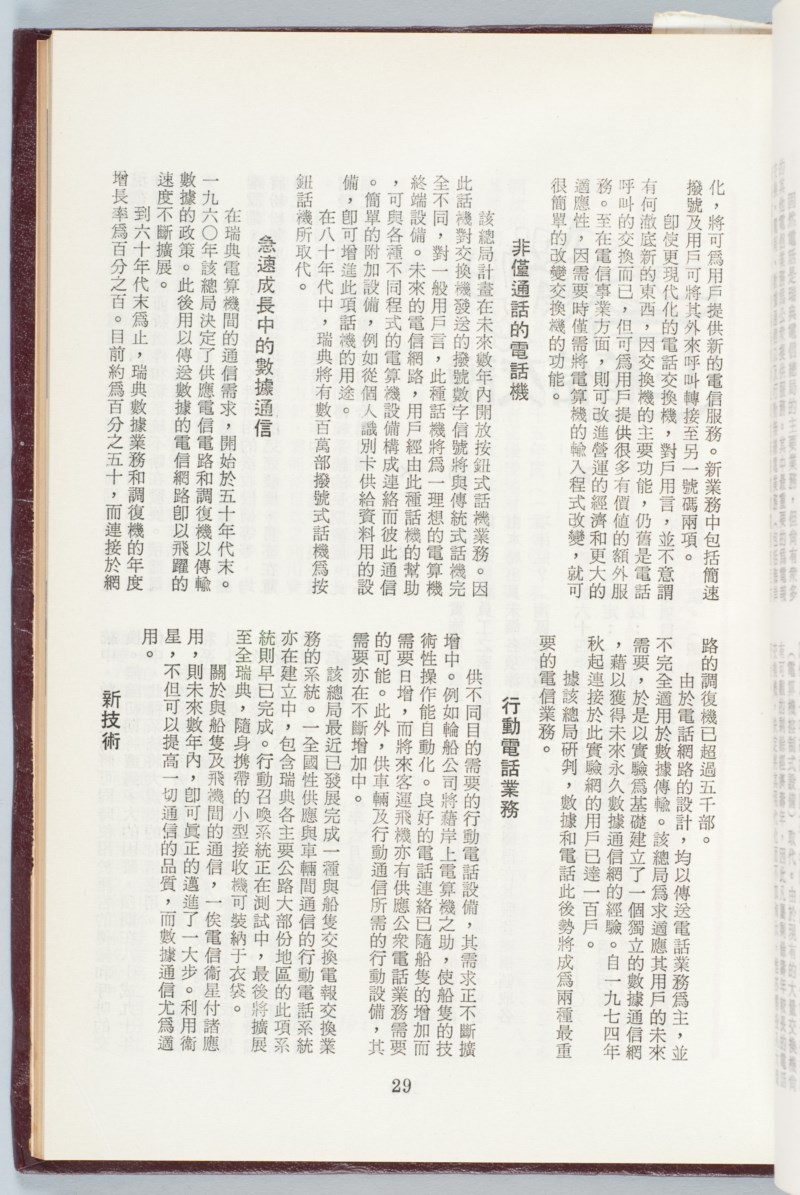 化，將可爲用戶提供新的電信服務。新業務中包括簡速
撥號及用戶可將其外來呼叫轉接至另一號碼兩項。
卽使更現代化的電話交換機，對戶用言，並不意謂
有何澈底新的東西，因交換機的主要功能，仍舊是電話
呼叫的交換而已，但可爲用戶提供很多有價値的額外服
務。至在電信事業方面，則可改進營運的經濟和更大的
適應性，因需要時僅需將電算機的輸入程式改變，就可
很簡單的改變交換機的功能。
非僅通話的電話機
該總局計畫在未來數年內開放按鈕式話機業務。因
此話機對交換機發送的撥號數字信號將與傳統式話機完
全不同，對一般用戶言，此種話機將爲一理想的電算機
終端設備。未來的電信網路，用戶經由此種話機的幫助
，可與各種不同程式的電算機設備構成連絡而彼此通信
。簡單的附加設備，例如從個人識別卡供給資料用的設
備，卽可增進此項話機的用途。
在八十年代中，瑞典將有數百萬部撥號式話機爲按
鈕話機所取代。
急速成長中的數據通信
在瑞典電算機間的通信需求，開始於五十年代末。
一九六〇年該總局決定了供應電信電路和調復機以傳輸
數據的政策。此後用以傳送數據的電信網路卽以飛躍的
速度不斷擴展。
到六十年代末爲止，瑞典數據業務和調復機的年度
增長率爲百分之百。目前約爲百分之五十，而連接於網
路的調復機已超過五千部。
由於電話網路的設計，均以傳送電話業務爲主，並
不完全適用於數據傳輸。該總局爲求適應其用戶的未來
需要，於是以實驗爲基礎建立了一個獨立的數據通信網
，藉以獲得未來永久數據通信網的經驗。自一九七四年
秋起連接於此實驗網的用戶已達一百戶。
據該總局研判，數據和電話此後勢將成爲兩種最重
要的電信業務。
行動電話業務
供不同目的需要的行動電話設備，其需求正不斷擴
增中。例如輪船公司將藉岸上電算機之助，使船隻的技
術性操作能自動化。良好的電話連絡已隨船隻的增加而
需要日增，而將來客運飛機亦有供應公衆電話業務需要
的可能。此外，供車輛及行動通信所需的行動設備，其
需要亦在不斷增加中。
該總局最近已發展完成一種與船隻交換電報交換業
務的系統。一全國性供應與車輛間通信的行動電話系統
亦在建立中，包含瑞典各主要公路大部份地區的此項系
統則早已完成。行動召喚系統正在測試中，最後將擴展
至全瑞典，隨身携帶的小型接收機可裝納于衣袋。
關於與船隻及飛機間的通信，一俟電信衞星付諸應
用，則未來數年內，卽可眞正的邁進了一大步。利用衞
星，不但可以提高一切通信的品質，而數據通信尤爲適
用。
新技術
29